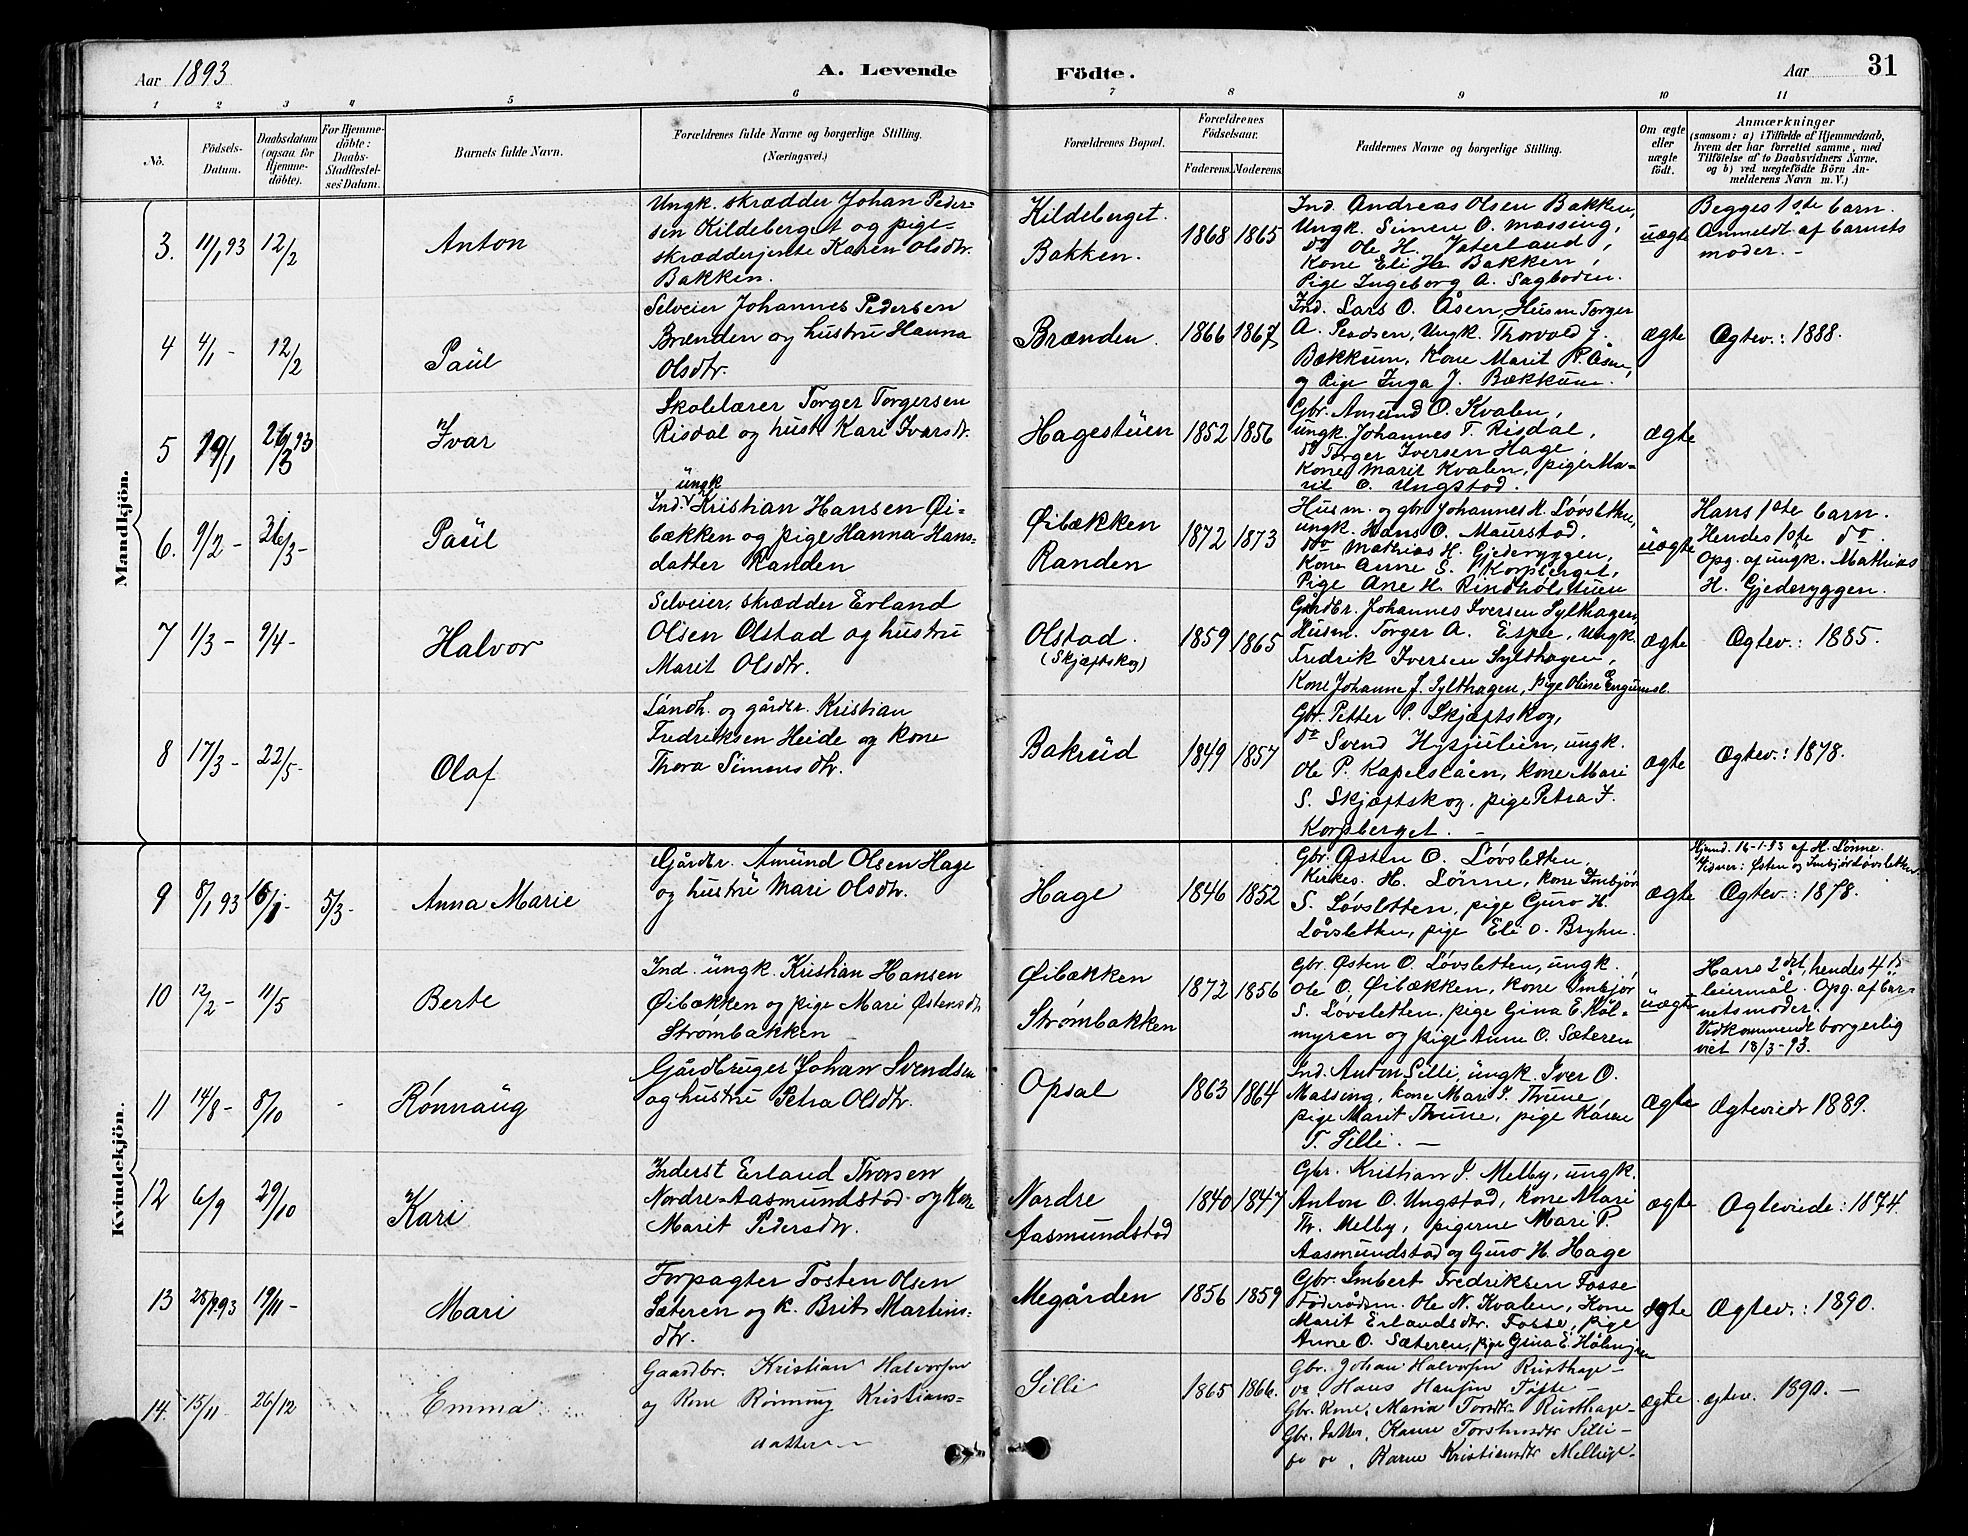 Aar 1893
A. Levende
Födte.
Aar
31
1 2 3 4 5 6 7 8 9 10 11
No.
Födsels-
Datum.
Daabsdatum
(ogsaa for
Hjemme-
döbte).
For Hjemme-
döbte:
Daabs-
Stadfæstel-
ses Datum.
Barnets fulde Navn.
Forældrenes fulde Navne og borgerlige Stilling.
(Næringsvei.)
Forældrenes Bopæl.
Forældrenes
Födselsaar.
Faderens. Moderens.
Faddernes Navne og borgerlige Stilling.
Om ægte
eller
uægte
født.
Anmærkninger
(saasom: a) i Tilfælde af Hjemmedaab,
hvem der har forrettet samme, med
Tilföielse af to Daabsvidners Navne,
og b) ved uægtefödte Börn An-
melderens Navn m. V.)
Mandkjön.
3. 11/1 93 12/2
Anton
Ungk. skrædder Johan Peder-
sen Kildeberget og pige-
skrædderjente Karen Olsdtr.
Bakken.
Kildeberget.
Bakken.
1868 1865
Ind. Andreas Olsen Bakken,
Ungk. Simen O. Massing,
do Ole H. Vaterland,
Kone Eli H. Bakken,
Pige Ingeborg A. Sagboden.
uægte
Begges 1ste barn.
Anmeldt af barnets
moder. -
4 4/1 - 12/2
Paul
Selveier Johannes Pedersen
Brænden og hustru Hanna
Olsdtr.
Brænden.
1866 1867
Ind. Lars O. Åsen, Husm Torger
A. Ungk. Thorvald J.
Bækkum, Kone Marit R. Åsen,
og Pige Inga J. Bækkum.
ægte
Ægtev.: 1888.
5 19/1 26/3 93
Ivar
Skolelærer Torger Torgersen
Risdal og hust. Kari Ivarsdr.
Hagestuen
1852 1856
Gbr. Amund O. Kvalen,
ungk. Johannes T. Risdal,
do Torger Iversen Hage,
Kone Marit Kvalen, piger Ma-
rit O. Ungstad.
ægte
6. 9/2 - 26/3 -
Paul
ungk
Ind. Kristian Hansen Øi-
bækken og pige Hanna Hans-
datter Randen
Øibækken
Randen
1872 1873
Husm. og gbr. Johannes H. Løvsletten,
ungk. Hans O. Maurstad,
do Mathias H. Gjederyggen,
Kone Anne S. Korpberget,
Pige Ane H. Rindholstuen
uægte
Hans 1ste barn.
Hendes 1ste do.
Opg. af ungk. Mathias
H. Gjederyggen.
7 1/3 - 9/4 -
Halvor
Selveier, skrædder Erland
Olsen Olstad og hustru
Marit Olsdtr.
Olstad.
(Skjæftskog)
1859 1865
Gårdbr. Johannes Iversen Sylthagen,
Husm. Torger A. Espe, Ungk.
Fredrik Iversen Sylthagen,
Kone Johanne J. Sylthagen, pige Oline
ægte
Ægtev.: 1885.
8 17/3 - 22/5 -
Olaf
Landh. og gårdbr. Kristian
Fredriksen Heide og kone
Thora Simensdtr.
Bakrud
1849 1857
Gbr. Petter P. Skjæftskog,
do Svend Hysjulien, ungk.
Ole P. Kapelslåen, kone Mari
S. Skjæftskog, pige Petra J.
Korpberget. -
ægte
Ægtev.: 1878.
Kvindekjön.
9 8/1 93 16/1 - 5/3 -
Anna Marie
Gårdbr. Amund Olsen Hage
og hustru Mari Olsdtr.
Hage
1846 1852
Gbr. Østen O. Løvsletten,
Kirkes. H. Lønne, kone Imbjør
S. Løvsletten, pige Guro H.
Løvsletten, pige Eli O. Bryhn.
ægte
Hjemd. 16-1-93 af H. Lønne.
Vidner: Østen og Imbjør Løvsletten.
Ægtev.: 1878.
10 12/2 - 11/5
Berte
Ind. ungk. Kristian Hansen
Øibækken og pige Mari Østensdtr
Strømbakken
Øibækken
Strømbakken
1872 1856
Gbr. Østen O. Løvsletten, ungk.
Ole O. Øibækken, kone Imbjør
S. Løvsletten, pige Gina E. Høl-
myren og pige Anne O. Sæteren
uægte
Hans 2det, hendes 4de
leiermål. Opg. af bar-
nets moder.
Vedkommende borgerlig
viet 18/3-93.
11 14/8 - 8/10 -
Rønnaug
Gårdbruger Johan Svendsen
og hustru Petra Olsdtr.
Opsal
1863 1864
Ind. Anton Silli, ungk. Iver O.
Malsing, kone Mari I. Thrune,
pige Marit Thrune, pige Karen
T. Silli. -
ægte
Ægteviede 1889.
12 6/9 29/10
Kari
Inderst Erland Thorsen
Nordre-Aasmundstad og Kone
Marit Pedersdtr.
Nordre
Aasmundstad
1840 1847
Gbr. Kristian J. Melby, ungk.
Anton O. Ungstad, kone Mari
Th. Melby, pigerne Mari P.
Aasmundstad og Guro H. Hage
ægte
Ægteviede: 1874.
13 25/9 93 19/11 -
Mari
Forpagter Tosten Olsen
Sæteren og k. Brit Martins-
dtr.
Megården
1856 1859
Gbr. Imbert Fredriksen Fosse
Føderådsm. Ole N. Kvalen, Kone
Marit Erlandsdtr. Fosse, pige
Anne O. Sæteren, pige Gina E. Hølmyren
ægte
Ægtev.: 1890.
14. 15/11 - 26/12
Emma
Gaardbr. Kristian Halvorsen
og Kone Rønnoug Kristians-
datter -
Silli
1865 1866.
Gbr. Johan Halvorsen Rusthage -
do Hans Hansen Tofte -
Gbr. Kone, Maria Torsdtr Rusthage -
Gbr. datter, Karen Torstensdtr Silli -
do do, Karen Kristiansdtr
ægte
ægtev. 1890. -